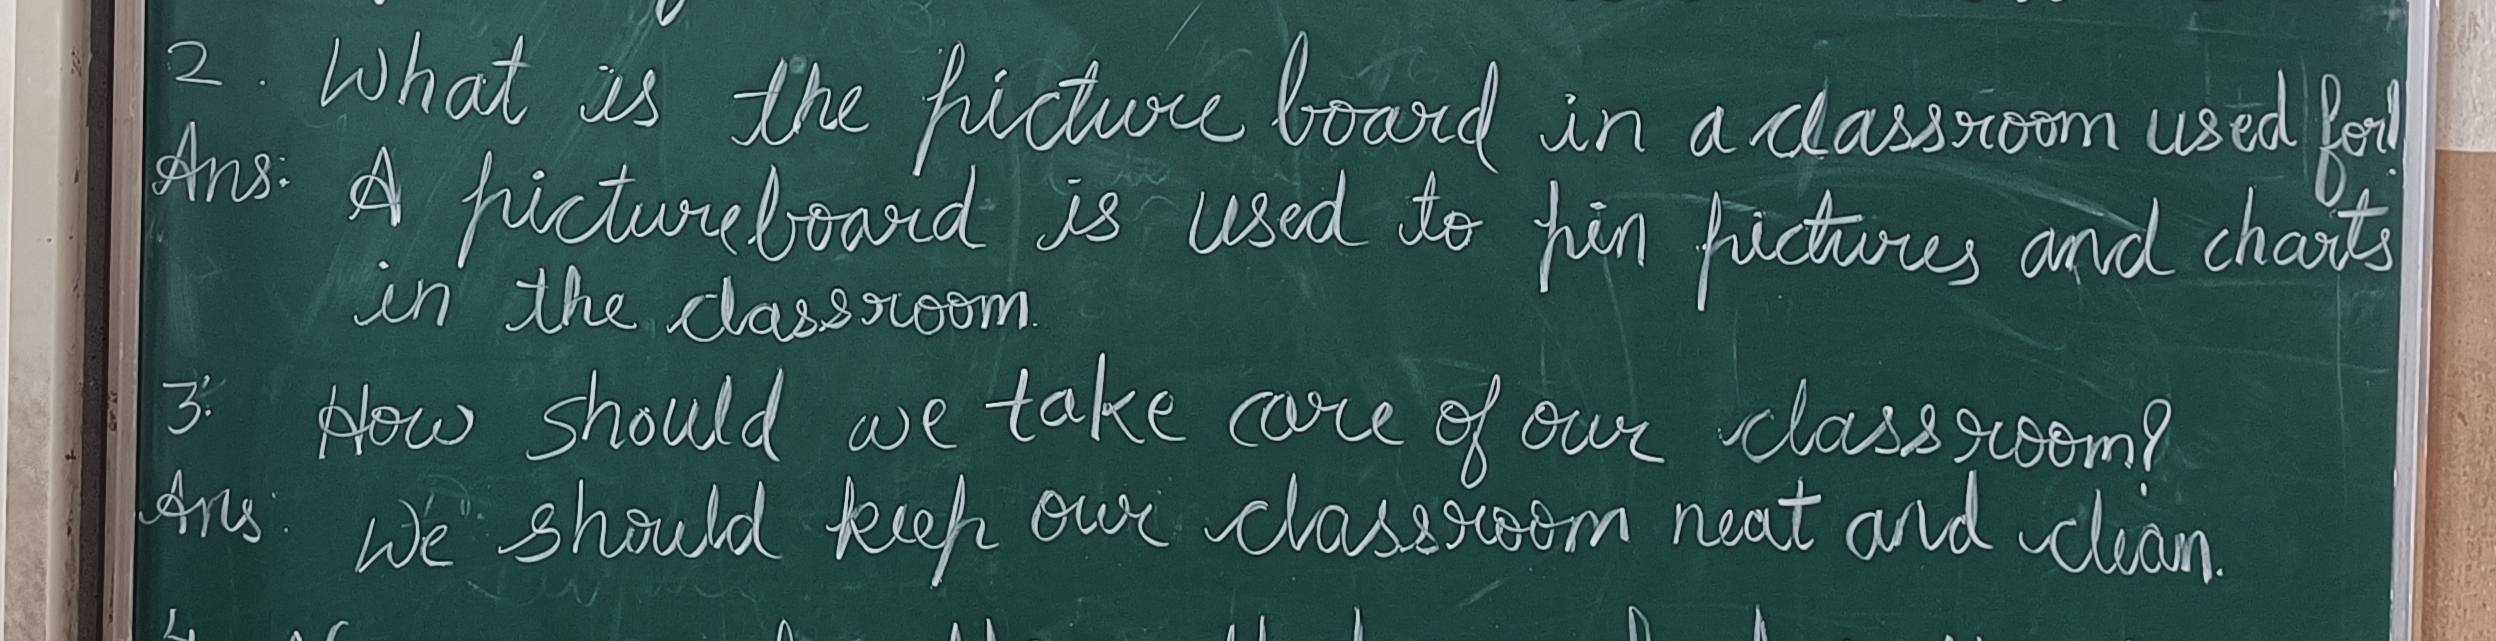 2. What is the picture board in a classroom used for?
Ans: A pictureboard is used to pin pictures and charts
in the classroom.
3. How should we take care of our classroom?
Ans. We should keep our classroom neat and clean.
4.